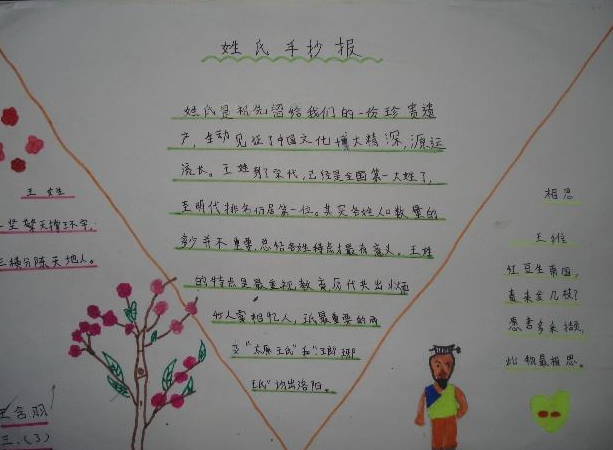 姓氏手抄报
姓氏是祖先留给我们的一份珍贵遗
产,生动见证了中国文化博大精深,源远
流长。王姓到了宋代,已经是全国第一大姓了,
至明代排名仍居第一位。其实各姓人口数量的
多少并不重要,总结各姓特点才最有意义。王姓
的特点是最重视教育,历代共出
人,最重要的两
支“太原王氏”和“琅琊
王氏”均出洛阳。
王 姓
三横分陈天地人。
相思
王维
红豆生南国,
春来发几枝?
愿君多采撷,
此物最相思。
王含羽
三、(3)